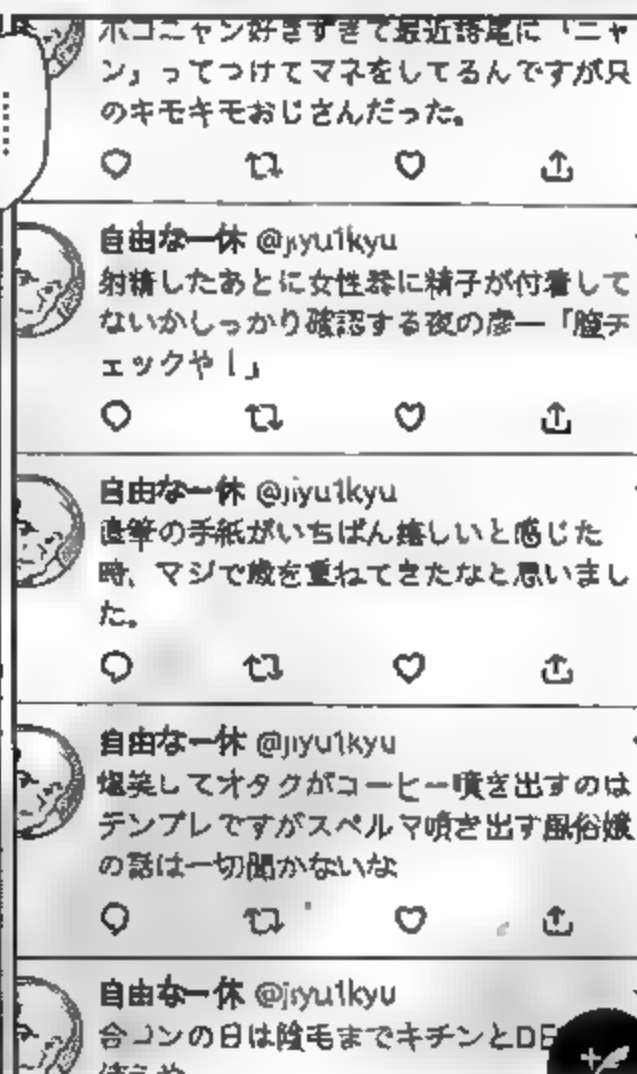 ポコニャン好きすぎて最近語尾に「ニャ
ン」ってつけてマネをしてるんですが只
のキモキモおじさんだった。
自由な一休 @jiyu1kyu
射精したあとに女性器に精子が付着して
ないかしっかり確認する夜の彦一「膣チ
ェックや!」
自由な一休 @jiyu1kyu
直筆の手紙がいちばん嬉しいと感じた
時、マジで歳を重ねてきたなと思いまし
た。
自由な一休 @jiyu1kyu
爆笑してオタクがコーヒー噴き出すのは
テンプレですがスペルマ噴き出す風俗嬢
の話は一切聞かないな
自由な一休 @jiyu1kyu
合コンの日は陰毛までキチンとDE